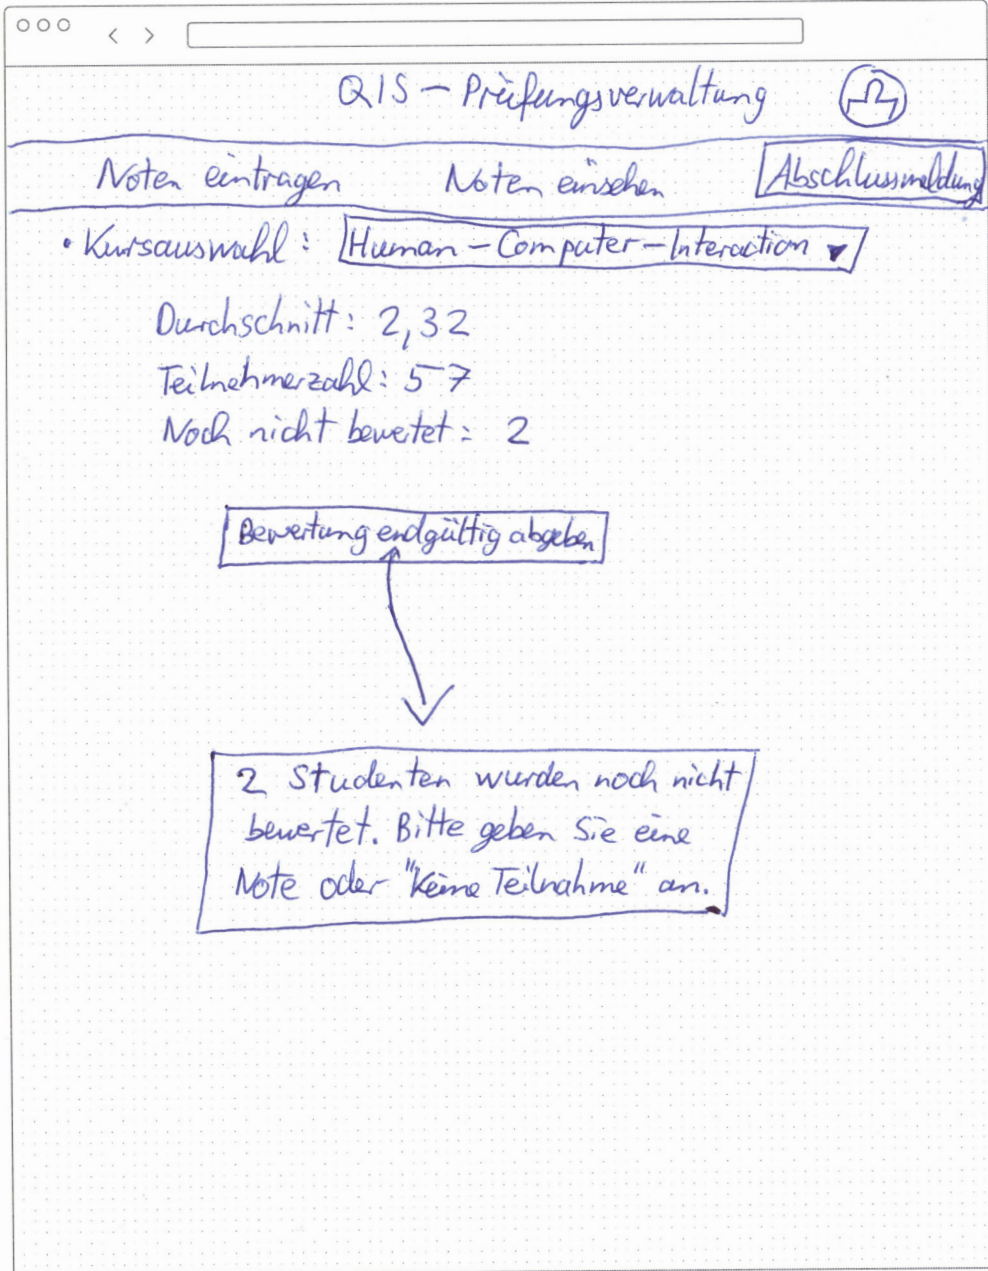 QIS - Prüfungsverwaltung
Noten eintragen Noten einsehen Abschlussmeldung
• Kursauswahl: Human-Computer-Interaction ▼
Durchschnitt: 2,32
Teilnehmerzahl: 57
Noch nicht bewertet: 2
Bewertung endgültig abgeben
2 Studenten wurden noch nicht
bewertet. Bitte geben Sie eine
Note oder "Keine Teilnahme" an.